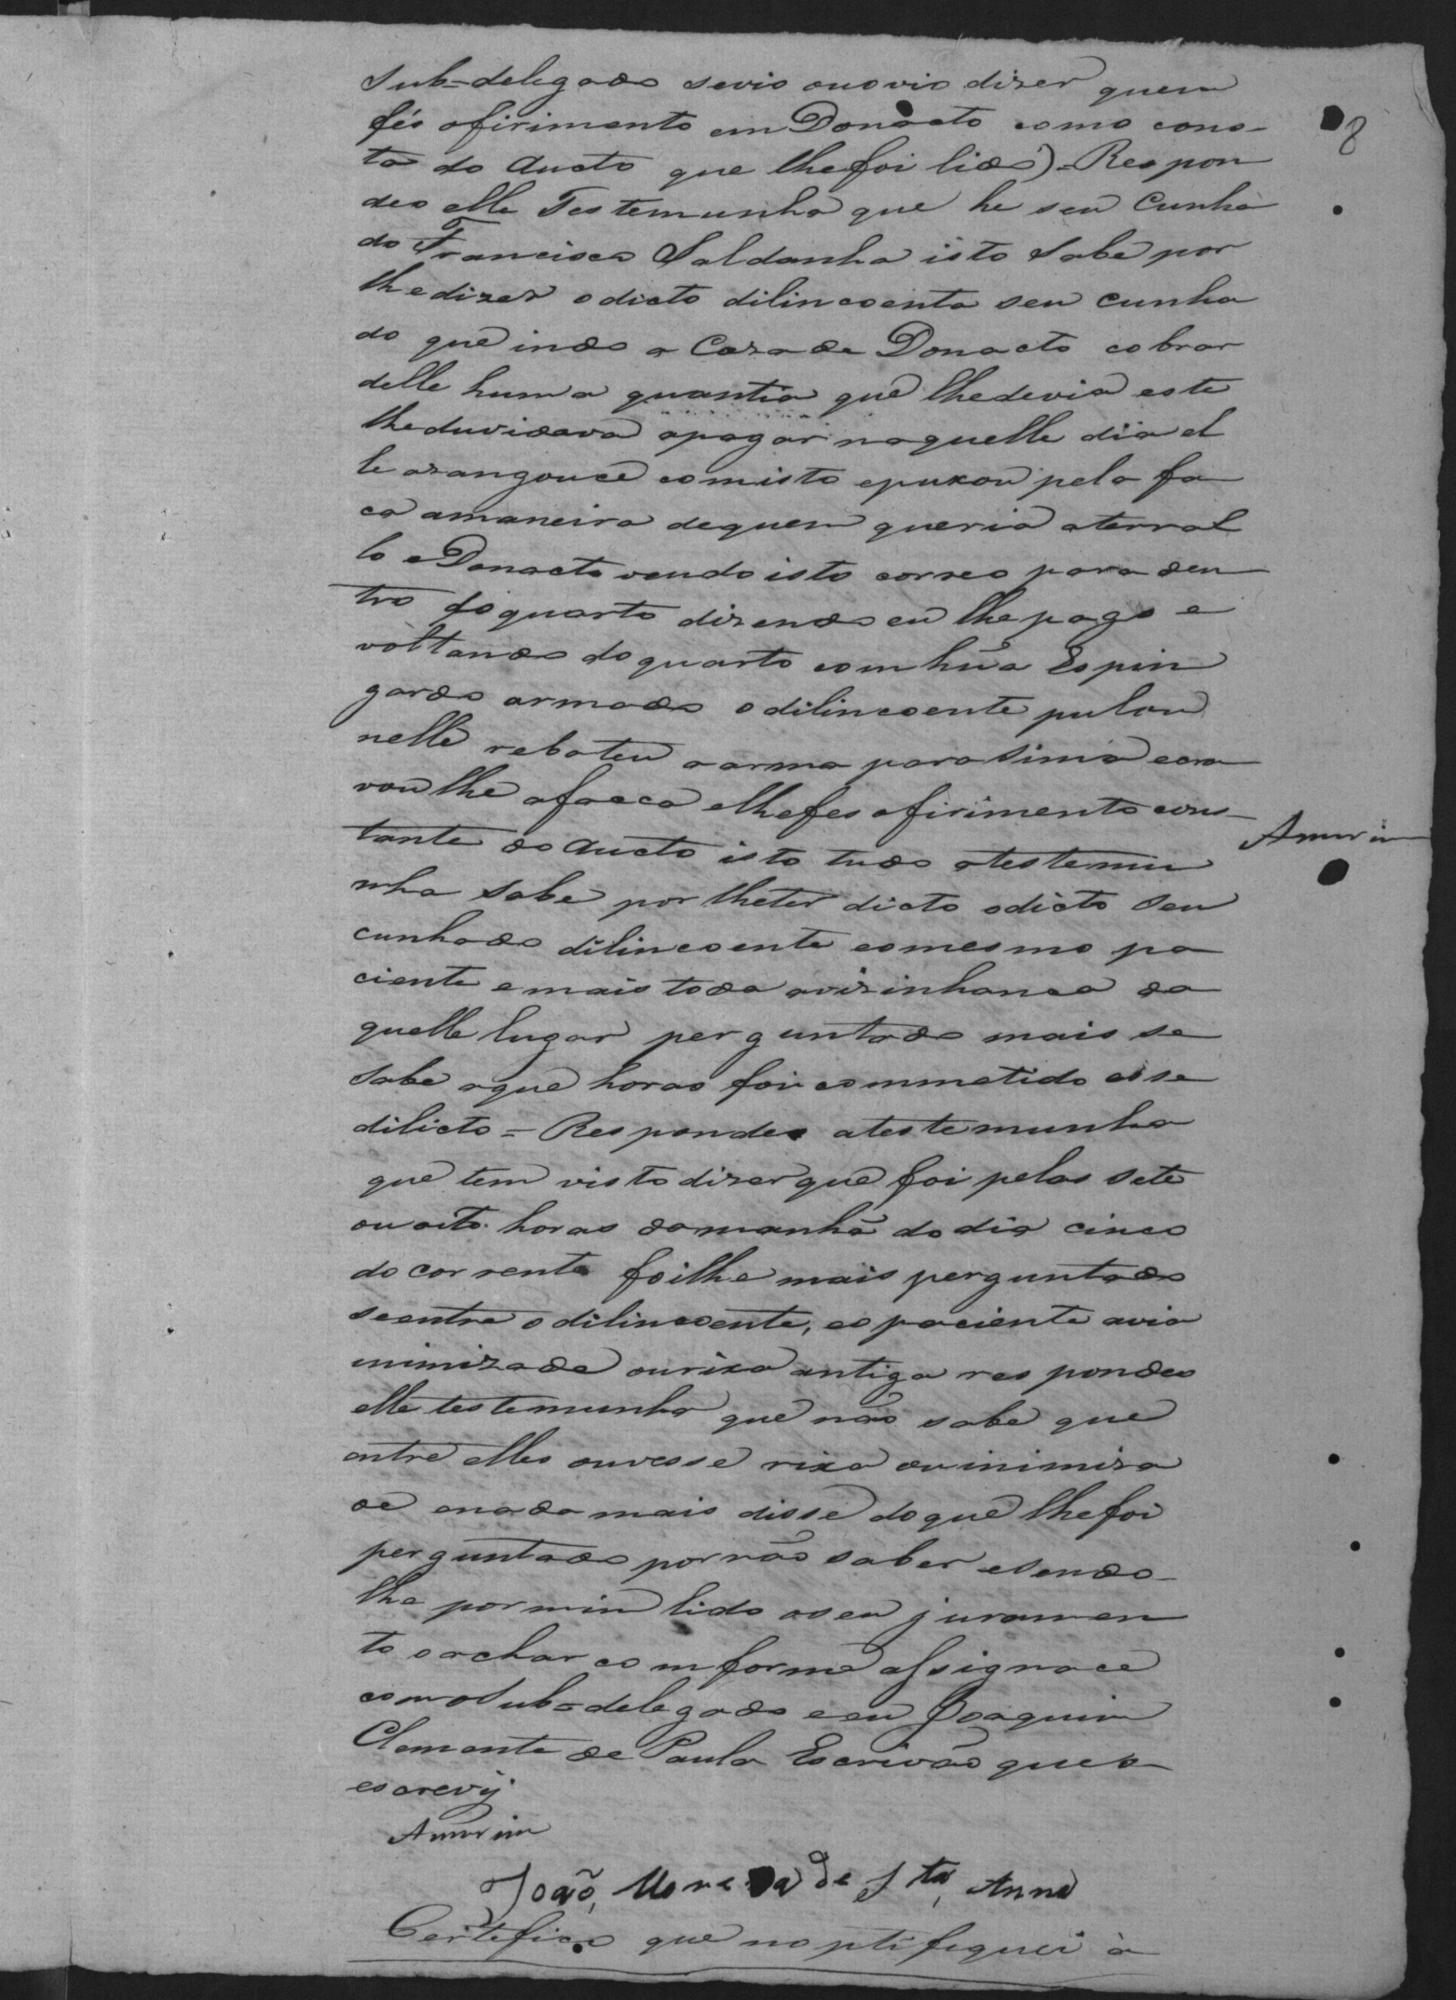 8
Sub=delegado sevio ouovio dizer quem
fés ofirimento em Donacto como cons-
ta do Aucto que lhefoi lido)=Respon
deo elle Testemunha que he seu Cunha
do Francisco Saldanha isto Sabe por
lhedizer odicto dilincoente seu cunha
do que indo a Caza de Donacto cobrar
delle huma quantia que lhedevia este
lheduvidava apagar naquelle dia el
le azangouce comisto epuxou pela fa
ca amaneira dequem queria aterral
lo eDonacto vendo isto correo para den
tro doquarto dizendo eu lhe pago e
voltando doquarto com hũa Espin
garda armada odilincoente pulou
nelle rebateu aarma parasima ecra
voulhe afacca elhefes ofirimento cons-
Amorim
tante do Aucto isto tudo atestemu
nha Sabe por lheter dicto odicto Seu
cunhado dilincoente eomesmo pa
ciente emais toda avizinhanca da
quelle lugar perguntado mais se
Sabe aque horas foi commetido esse
dilicto = Respondeo atestemunha
que tem visto dizer que foi pelas Sete
ou oito horas damanhã do dia cinco
do corrente foilhe mais perguntado
seentre odilincoente, eopaciente avia
inimizade ourixa antiga respondeo
elle testemunha que não sabe que
entre elles ouvesse rixa ouinimiza
de enada mais disse doque lhefoi
perguntado pornão saber esendo-
lhe pormim lido oseu juramen
to oachar comforme assignace
comoSub=delegado eeu Joaquim
Clemente de Paula Escrivão queo
escrevij
Amorim
João, Morera de Sta, Anna
Certefico que noptifiquei à